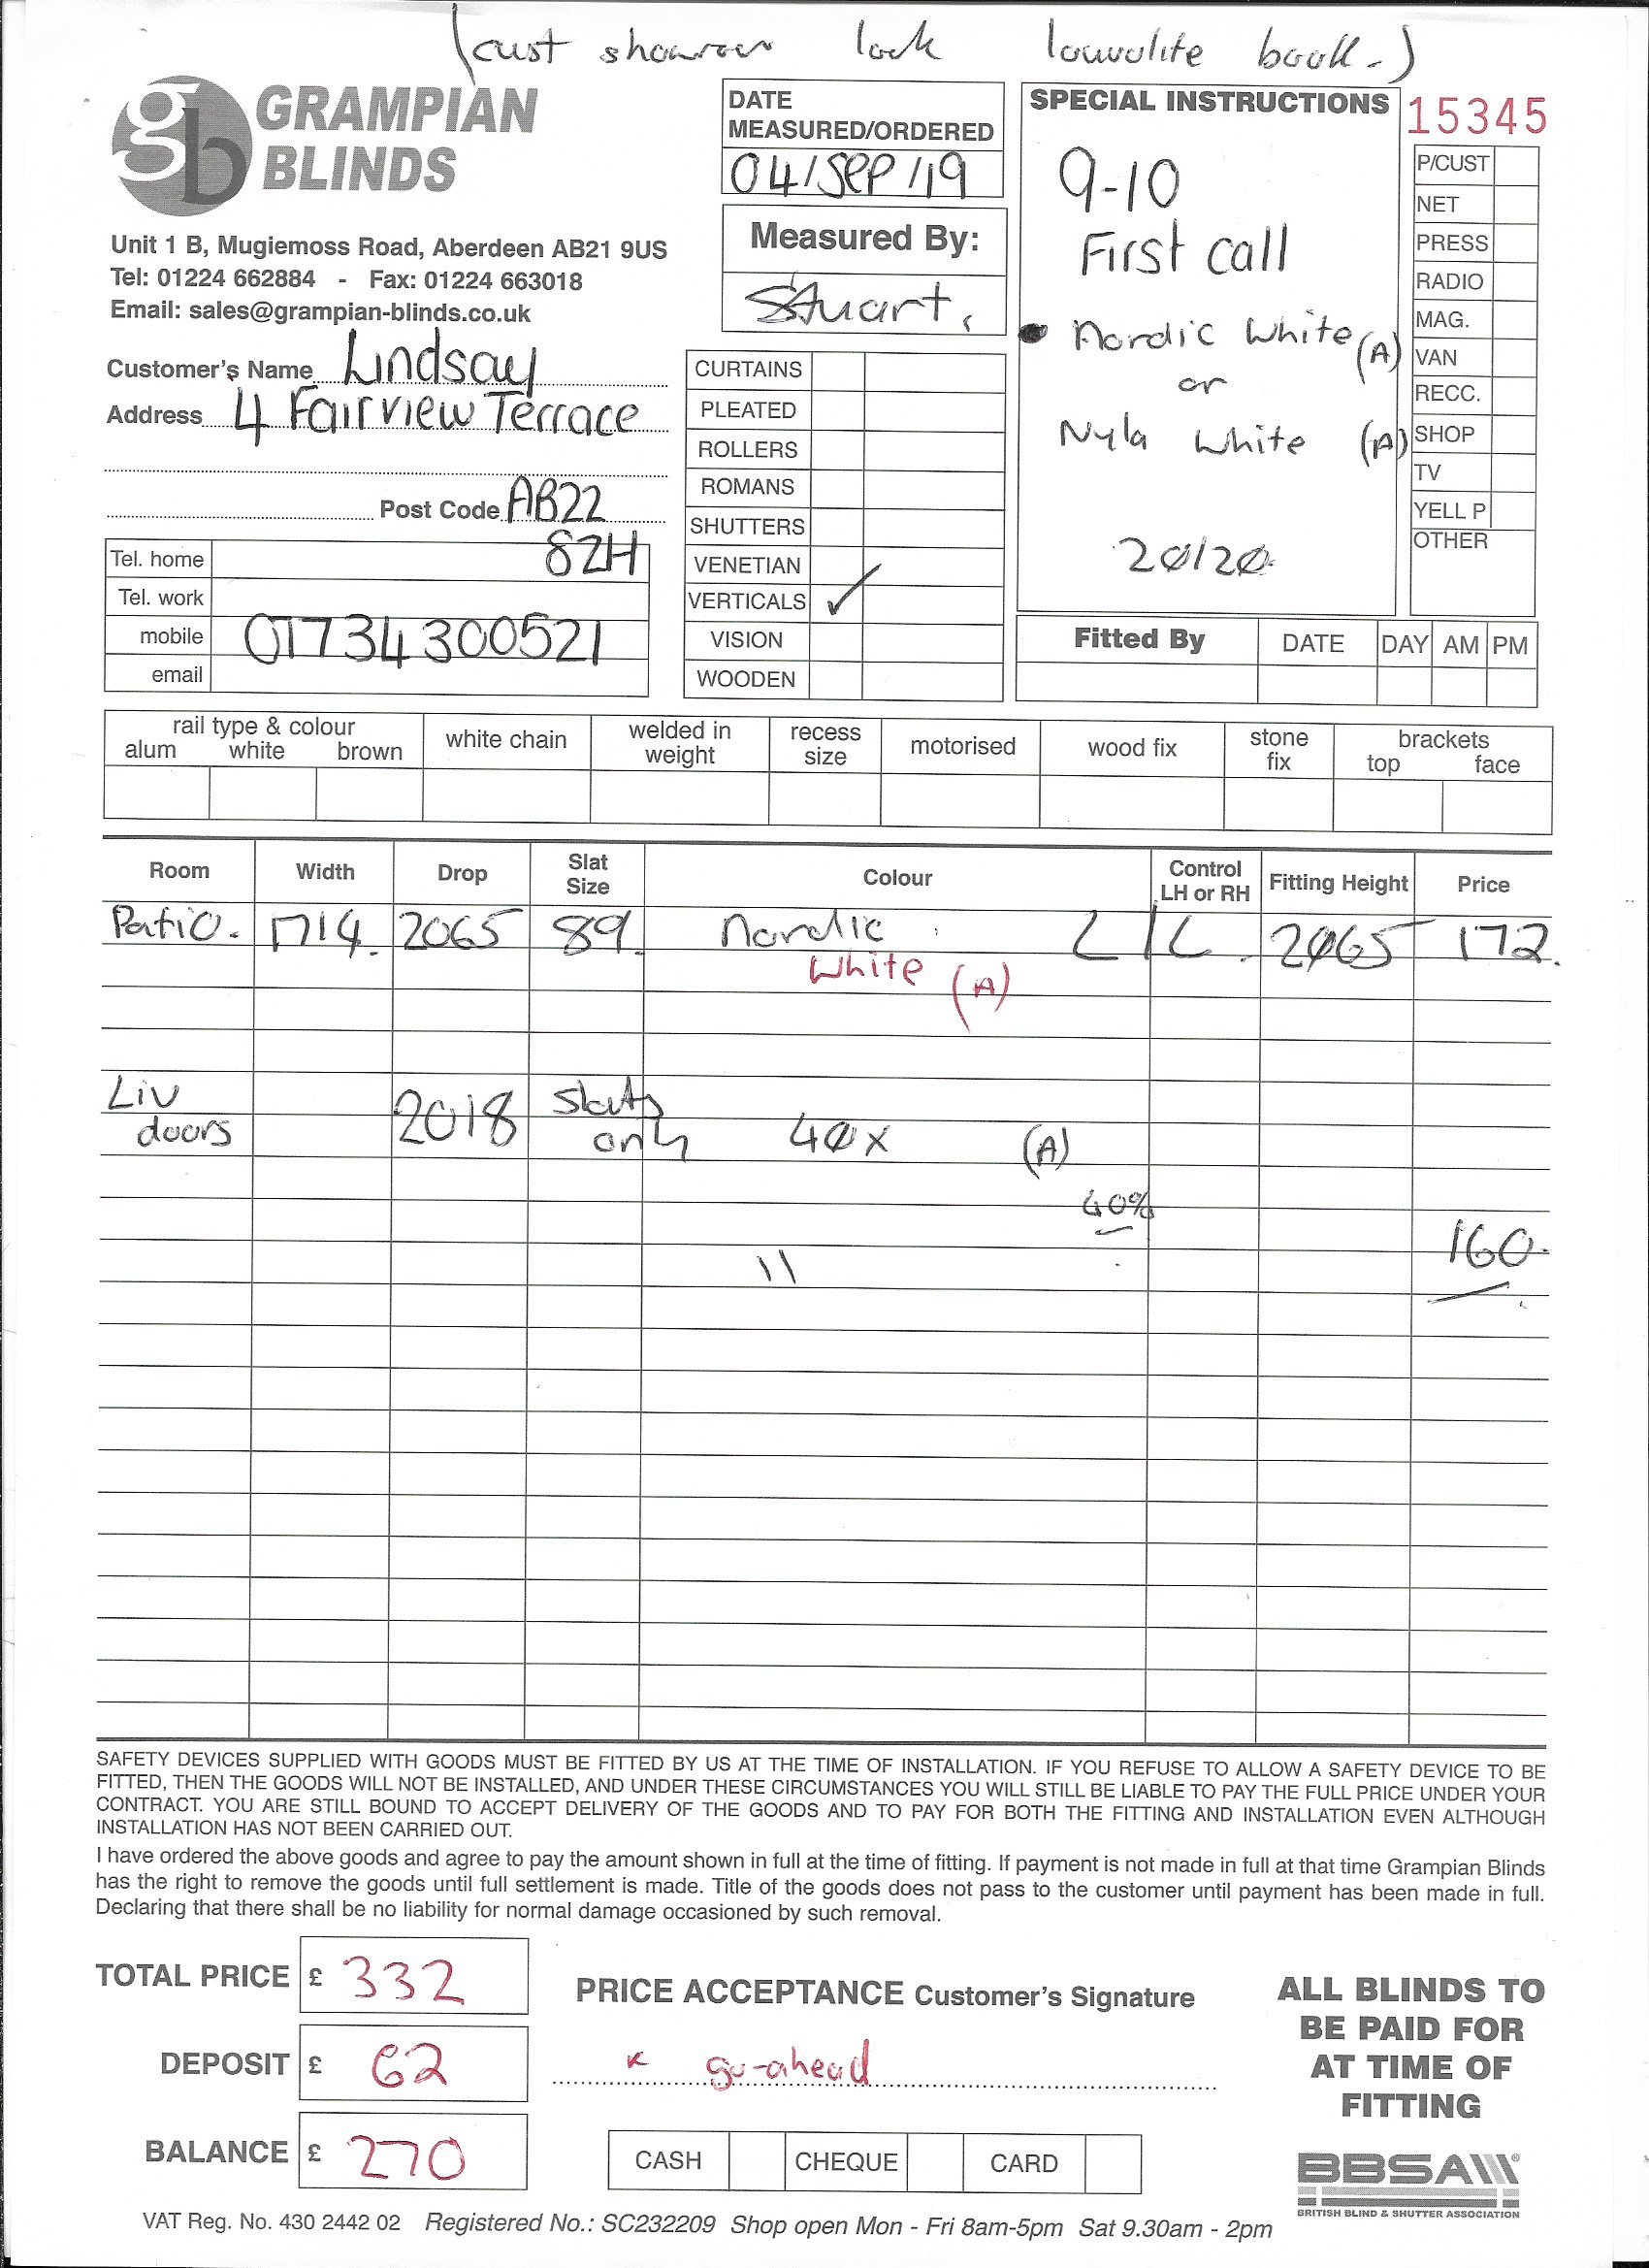 (cust showroom look louvolite book.)
GRAMPIAN
BLINDS
gb
Unit 1 B, Mugiemoss Road, Aberdeen AB21 9US
Tel: 01224 662884 - Fax: 01224 663018
Email: sales@grampian-blinds.co.uk
Customer's Name Lindsay
Address 4 Fairview Terrace
Post Code AB22
8ZH
Tel. home
Tel. work
mobile 01734 300521
email
DATE
MEASURED/ORDERED
04/SEP/19
Measured By:
Stuart.
CURTAINS
PLEATED
ROLLERS
ROMANS
SHUTTERS
VENETIAN
VERTICALS ✓
VISION
WOODEN
SPECIAL INSTRUCTIONS
9-10
First call
Nordic White (A)
or
Nyla White (A)
20/20
15345
P/CUST
NET
PRESS
RADIO
MAG.
VAN
RECC.
SHOP
TV
YELL P
OTHER
Fitted By DATE DAY AM PM
rail type & colour
alum white brown
white chain
welded in
weight
recess
size
motorised
wood fix
stone
fix
brackets
top face
Room Width Drop Slat Size Colour Control LH or RH Fitting Height Price
Patio. 1714. 2065 89. Nordic L/L. 2065 172.
White (A)
Liv 2018 Slats
doors only 40x (A)
40%
160.
\\
SAFETY DEVICES SUPPLIED WITH GOODS MUST BE FITTED BY US AT THE TIME OF INSTALLATION. IF YOU REFUSE TO ALLOW A SAFETY DEVICE TO BE
FITTED, THEN THE GOODS WILL NOT BE INSTALLED, AND UNDER THESE CIRCUMSTANCES YOU WILL STILL BE LIABLE TO PAY THE FULL PRICE UNDER YOUR
CONTRACT. YOU ARE STILL BOUND TO ACCEPT DELIVERY OF THE GOODS AND TO PAY FOR BOTH THE FITTING AND INSTALLATION EVEN ALTHOUGH
INSTALLATION HAS NOT BEEN CARRIED OUT.
I have ordered the above goods and agree to pay the amount shown in full at the time of fitting. If payment is not made in full at that time Grampian Blinds
has the right to remove the goods until full settlement is made. Title of the goods does not pass to the customer until payment has been made in full.
Declaring that there shall be no liability for normal damage occasioned by such removal.
TOTAL PRICE £ 332
DEPOSIT £ 62
BALANCE £ 270
PRICE ACCEPTANCE Customer's Signature
x go-ahead
CASH CHEQUE CARD
ALL BLINDS TO
BE PAID FOR
AT TIME OF
FITTING
BBSA
BRITISH BLIND & SHUTTER ASSOCIATION
VAT Reg. No. 430 2442 02 Registered No.: SC232209 Shop open Mon - Fri 8am-5pm Sat 9.30am - 2pm